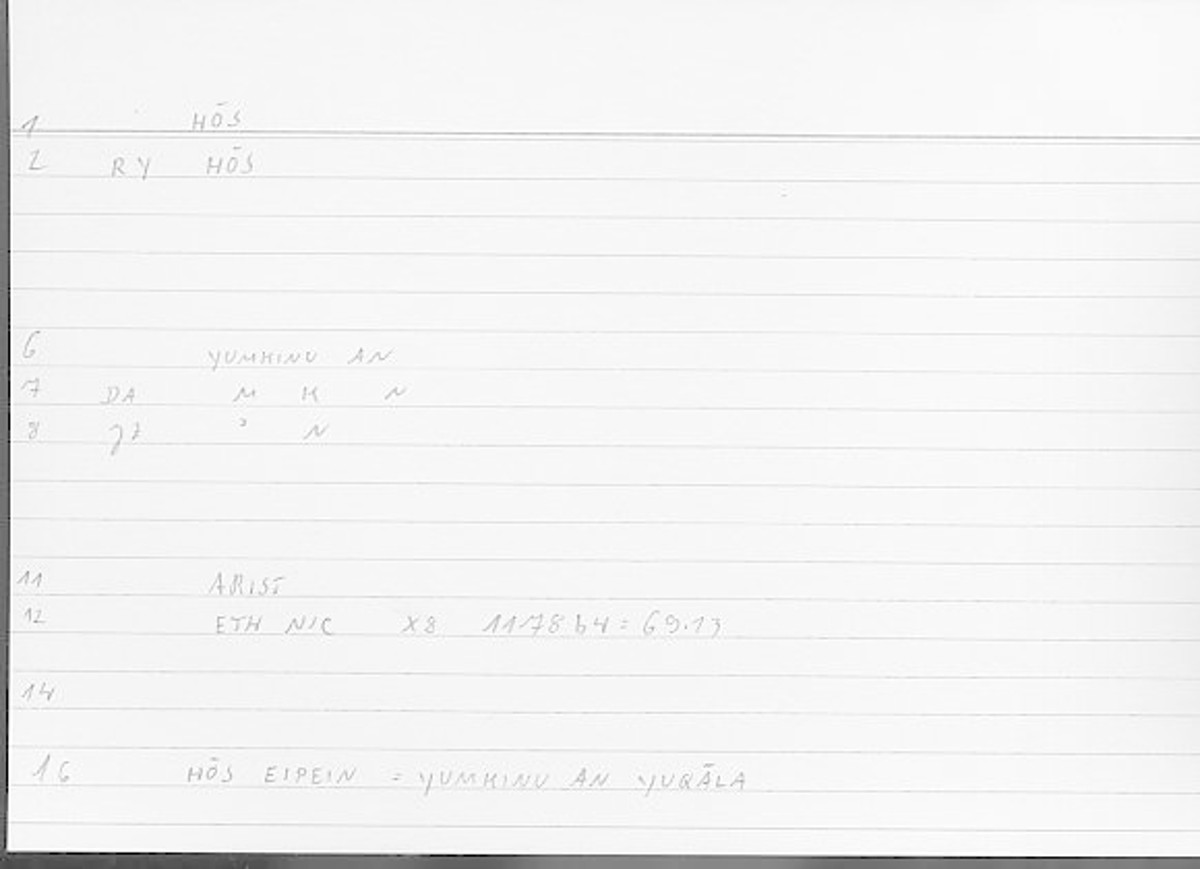 1 HŌS
2 RY HŌS
6 YUMKINU AN
7 DA M K N
8 ʾ N
11 ARIST
12 ETH NIC X8 1178 b4 = 69.13
14
16 HŌS EIPEIN = YUMKINU AN YUQĀLA